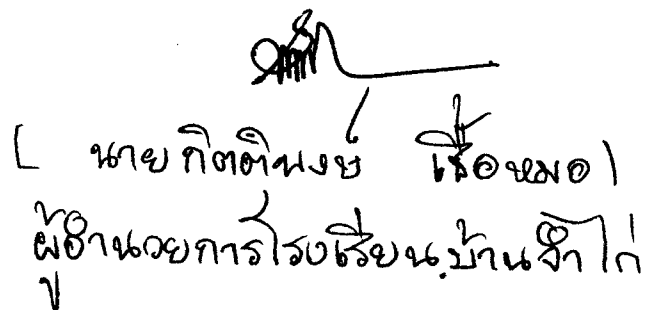 ( นายกิตติพงษ์ เชื้อหมอ )
ผู้อำนวยการโรงเรียนบ้านจำไก่